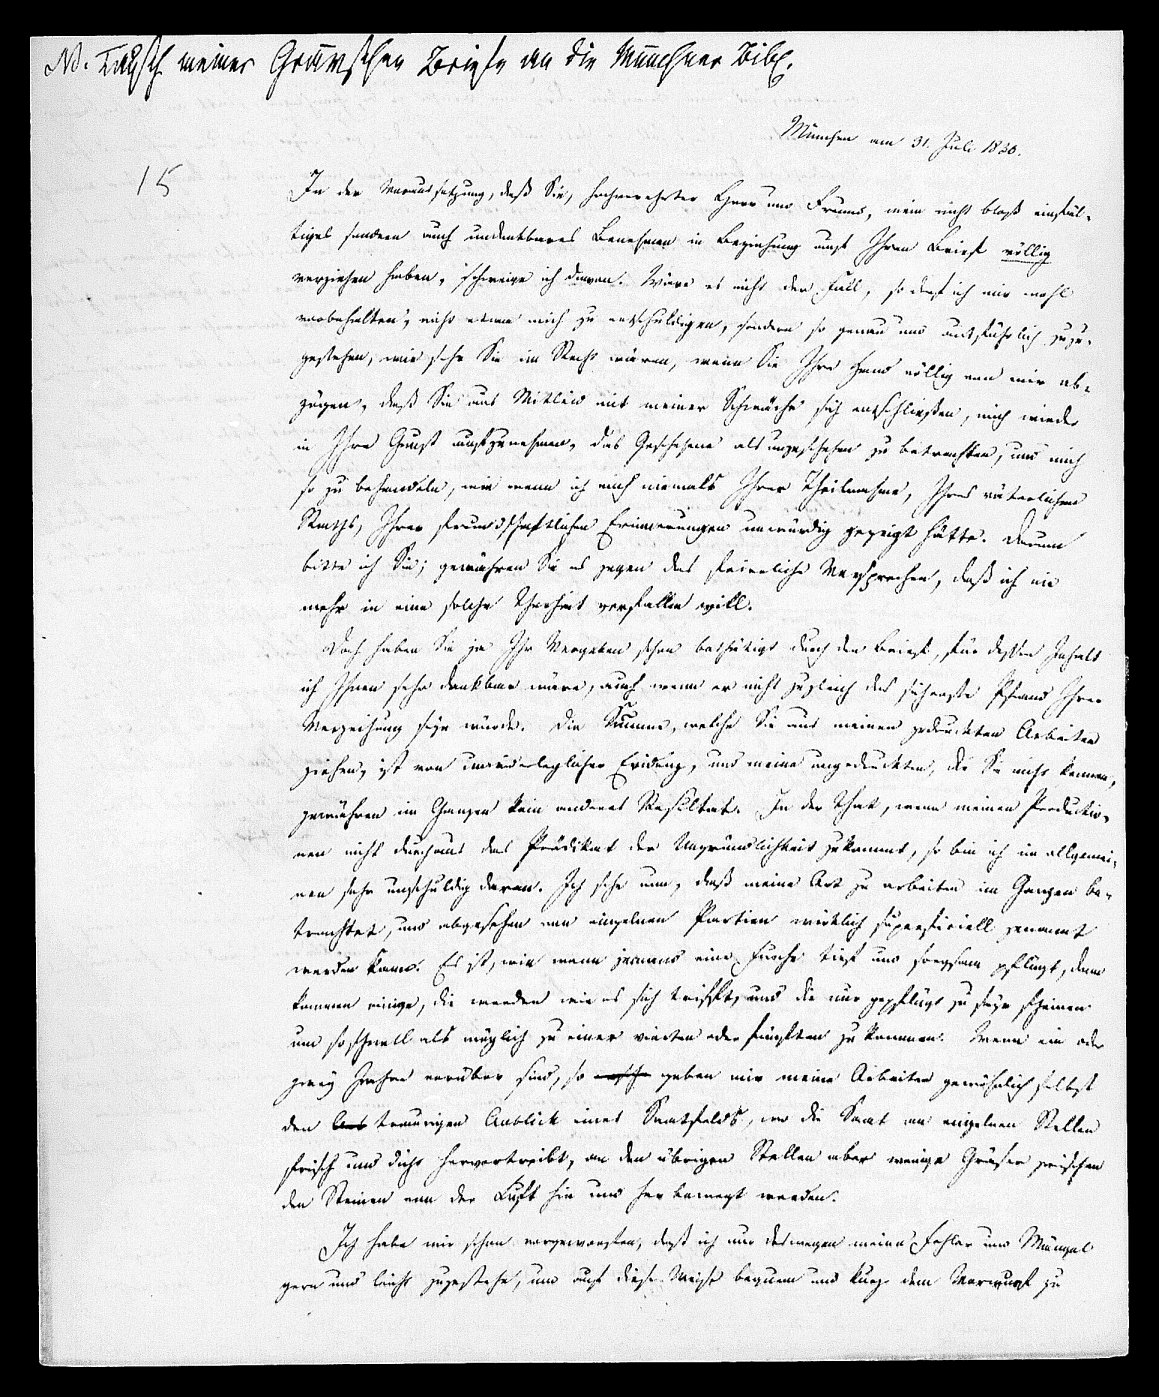 NB. Tausch meiner Grauertschen Briefe an die Münchner Bibl.
München am 31. Juli 1830.
15
In der Voraussetzung, daß Sie, hochverehrter Herr und Freund, mein nicht bloß einfäl-
tiges sondern auch undankbares Benehmen in Beziehung auf Ihren Brief völlig
verziehen haben, schweige ich davon. Wäre es nicht der Fall, so darf ich mir wohl
vorbehalten, nicht etwa mich zu entschuldigen, sondern so genau und ausführlich zuzu-
gestehen, wie sehr Sie im Recht wären, wenn Sie Ihre Hand völlig von mir ab-
zögen, daß Sie aus Mitleid mit meiner Schwäche sich entschließen, mich wieder
in Ihre Gunst aufzunehmen, das Geschehene als ungeschehen zu betrachten, und mich
so zu behandeln, wie wenn ich mich niemals Ihrer Theilnahme, Ihres väterlichen
Raths, Ihrer freundschaftlichen Erinnerungen unwürdig gezeigt hätte. Darum
bitte ich Sie; gewähren Sie es gegen das feierliche Versprechen, daß ich nie
mehr in eine solche Thorheit verfallen will.
Doch haben Sie ja Ihr Vergeben schon bethätigt durch den Brief, für dessen Inhalt
ich Ihnen sehr dankbar wäre, auch wenn er nicht zugleich das sicherste Pfand Ihrer
Verzeihung seyn würde. Die Summe, welche Sie aus meinen gedruckten Arbeiten
ziehen, ist von unwiderleglicher Evidenz, und meine ungedruckten, die Sie nicht kennen,
gewähren im Ganzen kein anderes Resultat. In der That, wenn meinen Productio-
nen nicht durchaus das Prädikat der Ungründlichkeit zukommt, so bin ich im allgemei-
nen sehr unschuldig daran. Ich sehe nun, daß meine Art zu arbeiten im Ganzen be-
trachtet, und abgesehen von einzelnen Partien wirklich superficiell genannt
werden kann. Es ist, wie wenn jemand eine Furche tief und sorgsam pflügt, dann
kommen einige, die werden wie es sich trifft, und die nur gepflügt zu seyn scheinen
um so schnell als möglich zu einer vierten oder fünften zu kommen. Wenn ein oder
zwey Jahre vorüber sind, so geben mir meine Arbeiten gewöhnlich selbst
den traurigen Anblick eines Saatfelds, wo die Saat an einzelnen Stellen
frisch und dicht hervortreibt, an den übrigen Stellen aber wenige Gräser zwischen
den Steinen von der Luft hin und her bewegt werden.
Ich habe mir schon vorgeworfen, daß ich nur deswegen meine Fehler und Mängel
gern und leicht zugestehe, um auf diese Weise bequem und kurz dem Vorwurf zu